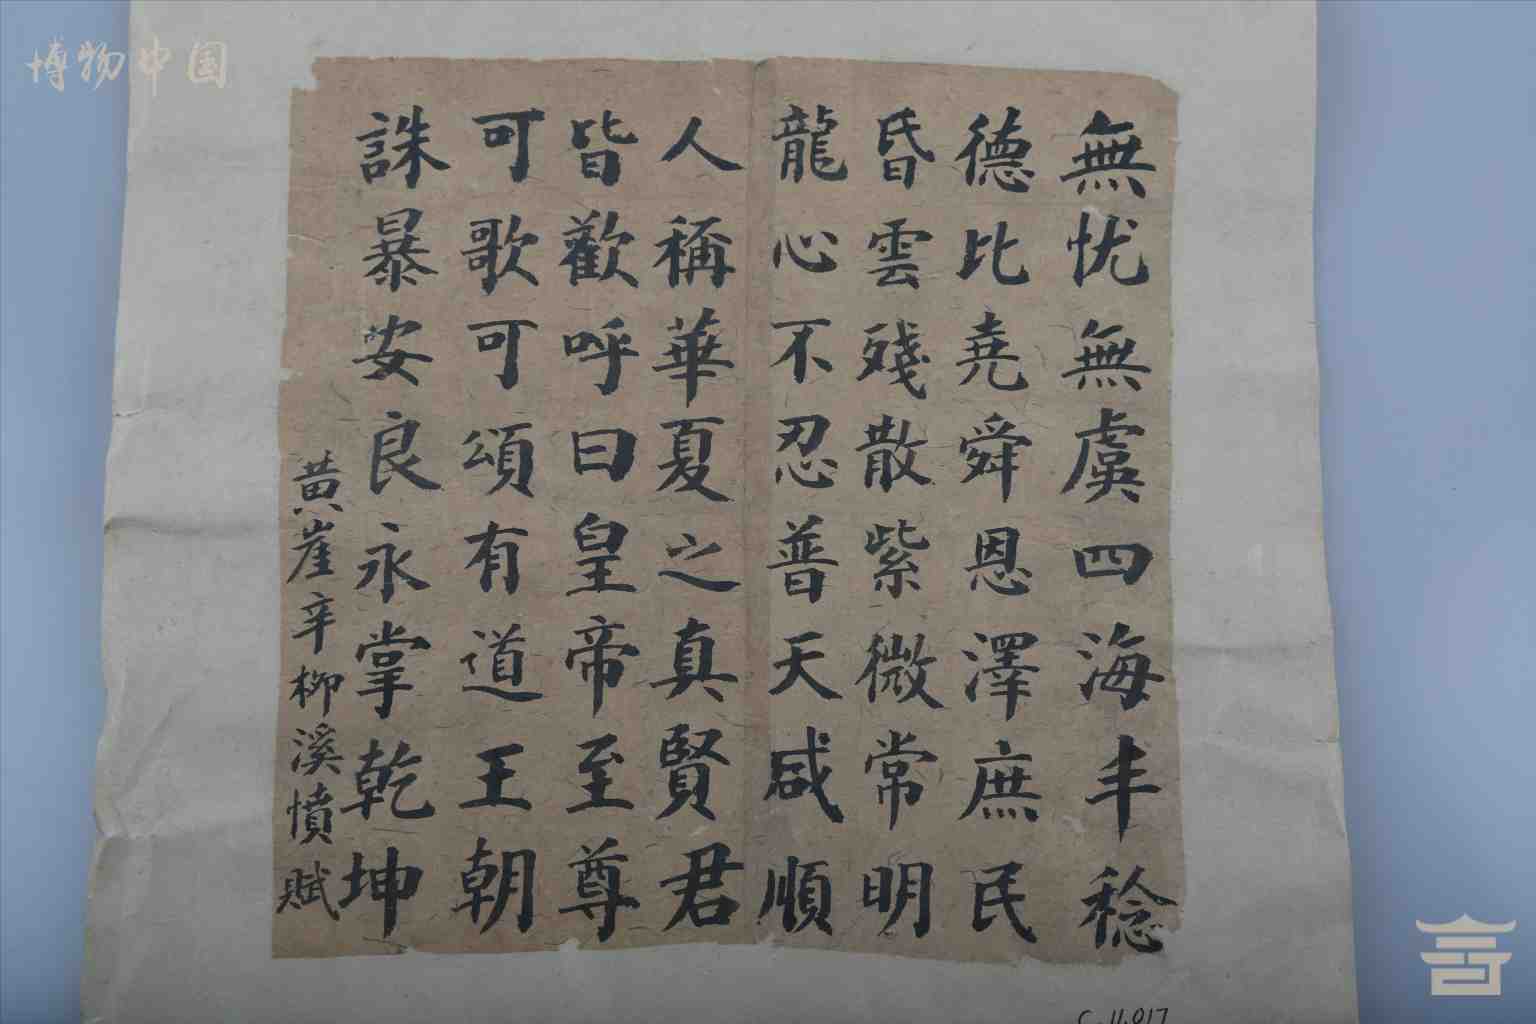 無忧無虞四海丰稔
德比堯舜恩澤庶民
昏雲殘散紫微常明
龍心不忍普天咸順
人稱華夏之真賢君
皆歡呼曰皇帝至尊
可歌可頌有道王朝
誅暴安良永掌乾坤
黃崖辛柳溪憤賦
博物中国
C.11.017